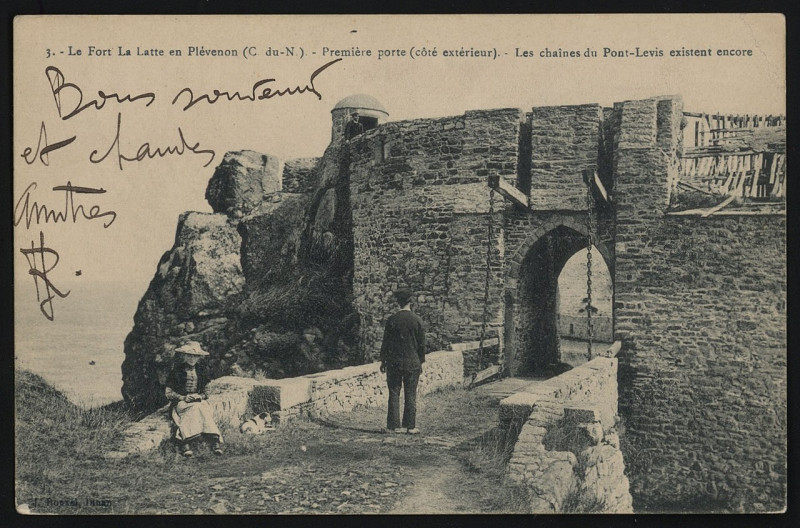 3. - Le Fort La Latte en Plévenon (C. du-N.). - Première porte (côté extérieur). - Les chaînes du Pont-Levis existent encore
Bons souvenirs
et chaudes
amitiés